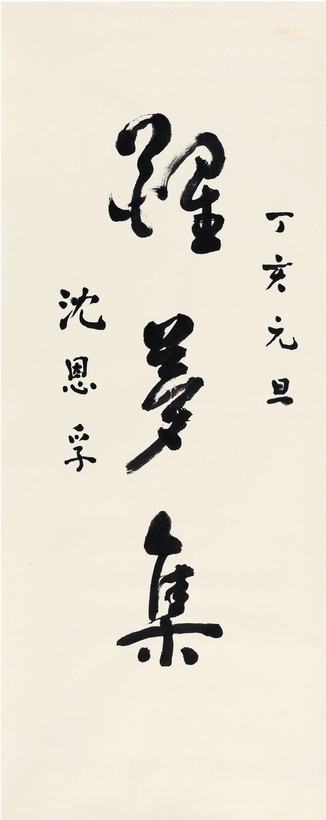 丁亥元旦
醒夢集
沈恩孚